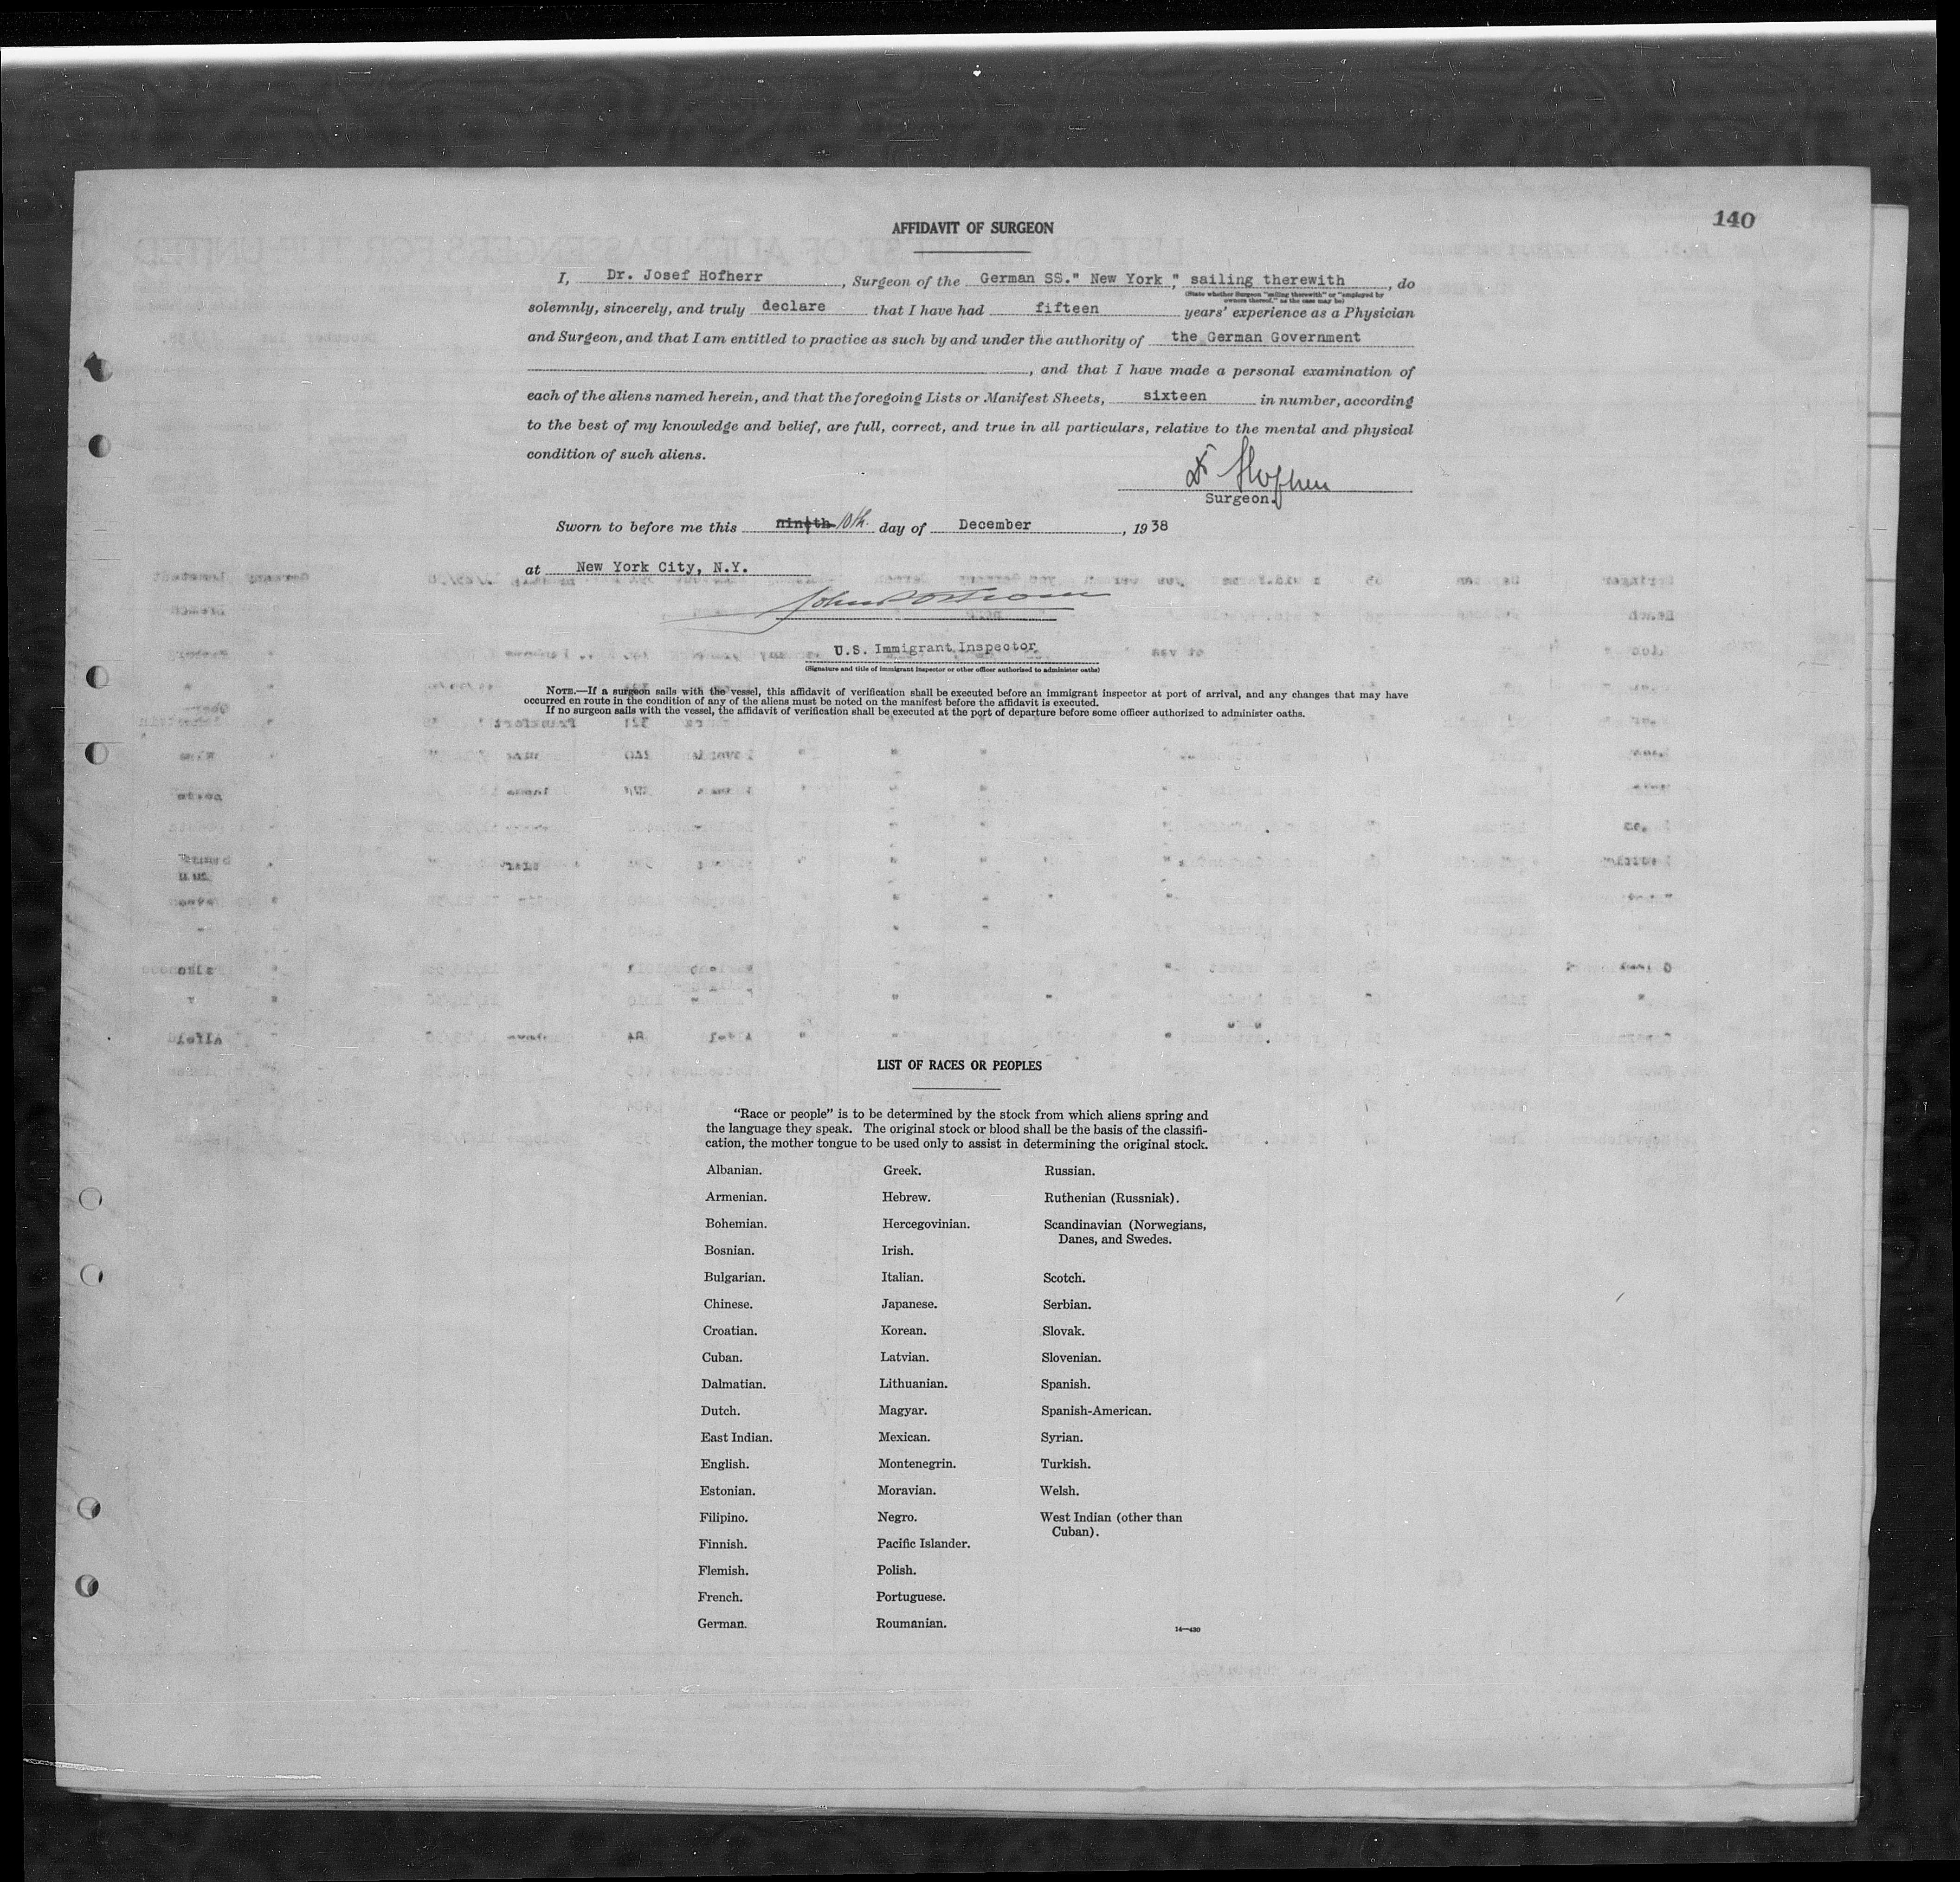 140
AFFIDAVIT OF SURGEON
I, Dr. Josef Hofherr, Surgeon of the German SS." New York," sailing therewith, do
(State whether Surgeon "sailing therewith" or "employed by
owners thereof," as the case may be)
solemnly, sincerely, and truly declare that I have had fifteen years' experience as a Physician
and Surgeon, and that I am entitled to practice as such by and under the authority of the German Government
, and that I have made a personal examination of
each of the aliens named herein, and that the foregoing Lists or Manifest Sheets, sixteen in number, according
to the best of my knowledge and belief, are full, correct, and true in all particulars, relative to the mental and physical
condition of such aliens.
Surgeon.
Sworn to before me this ninth 10th day of December, 1938
at New York City, N.Y.
U.S. Immigrant Inspector
(Signature and title of immigrant inspector or other officer authorized to administer oaths)
NOTE.—If a surgeon sails with the vessel, this affidavit of verification shall be executed before an immigrant inspector at port of arrival, and any changes that may have
occurred en route in the condition of any of the aliens must be noted on the manifest before the affidavit is executed.
If no surgeon sails with the vessel, the affidavit of verification shall be executed at the port of departure before some officer authorized to administer oaths.
LIST OF RACES OR PEOPLES
"Race or people" is to be determined by the stock from which aliens spring and
the language they speak. The original stock or blood shall be the basis of the classifi-
cation, the mother tongue to be used only to assist in determining the original stock.
Albanian.
Armenian.
Bohemian.
Bosnian.
Bulgarian.
Chinese.
Croatian.
Cuban.
Dalmatian.
Dutch.
East Indian.
English.
Estonian.
Filipino.
Finnish.
Flemish.
French.
German.
Greek.
Hebrew.
Hercegovinian.
Irish.
Italian.
Japanese.
Korean.
Latvian.
Lithuanian.
Magyar.
Mexican.
Montenegrin.
Moravian.
Negro.
Pacific Islander.
Polish.
Portuguese.
Roumanian.
Russian.
Ruthenian (Russniak).
Scandinavian (Norwegians,
Danes, and Swedes.
Scotch.
Serbian.
Slovak.
Slovenian.
Spanish.
Spanish-American.
Syrian.
Turkish.
Welsh.
West Indian (other than
Cuban).
14—430